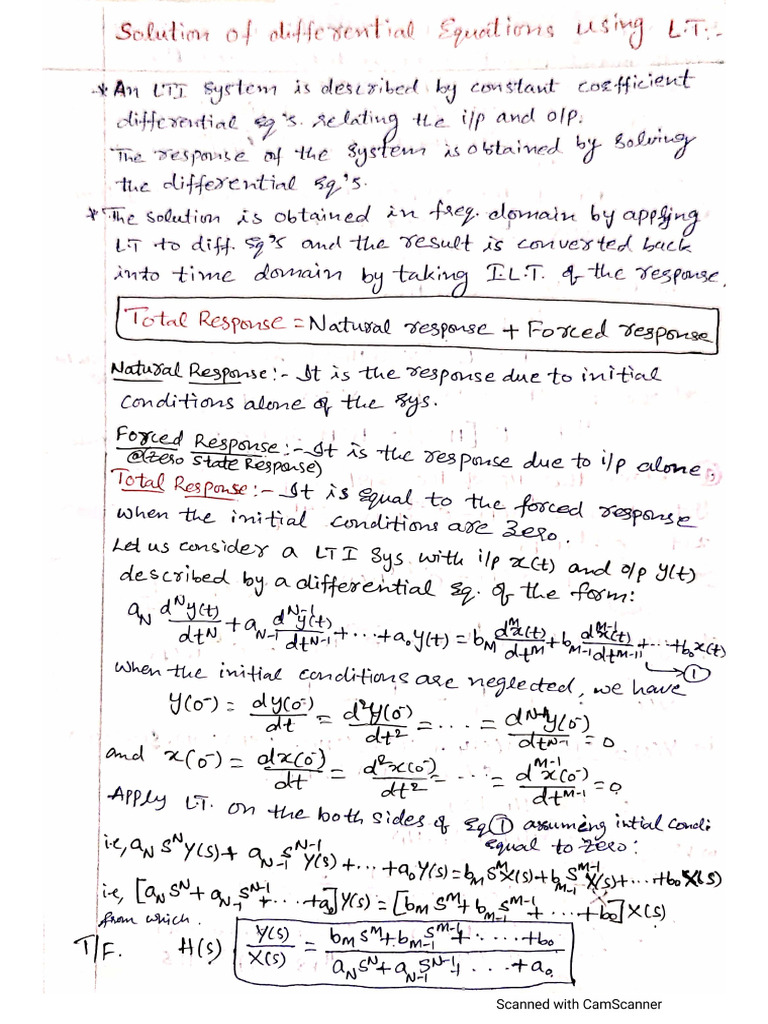 Solution of differential Equations using L.T:-
* An LTI system is described by constant coefficient
differential Eq's. relating the i/p and o/p.
The response of the system is obtained by solving
the differential Eq's.
* The solution is obtained in freq. domain by applying
LT to diff. Eq's and the result is converted back
into time domain by taking I.L.T. of the response.
Total Response = Natural response + Forced response
Natural Response:- It is the response due to initial
conditions alone of the sys.
Forced Response:- It is the response due to i/p alone.
@(zero state Response)
Total Response:- It is Equal to the forced response
when the initial conditions are zero.
Let us consider a LTI sys with i/p x(t) and o/p y(t)
described by a differential Eq. of the form:
a_N d^N y(t)/dt^N + a_{N-1} d^{N-1} y(t)/dt^{N-1} + ... + a_0 y(t) = b_M d^M x(t)/dt^M + b_{M-1} d^{M-1} x(t)/dt^{M-1} + ... + b_0 x(t)
→ ①
When the initial conditions are neglected, we have
y(0^-) = dy(0^-)/dt = d^2 y(0^-)/dt^2 = ... = d^{N-1} y(0^-)/dt^{N-1} = 0
and x(0^-) = dx(0^-)/dt = d^2 x(0^-)/dt^2 = ... = d^{M-1} x(0^-)/dt^{M-1} = 0
Apply LT. on the both sides of Eq ① assuming intial condi:
equal to zero:
i.e, a_N S^N Y(s) + a_{N-1} S^{N-1} Y(s) + ... + a_0 Y(s) = b_M S^M X(s) + b_{M-1} S^{M-1} X(s) + ... + b_0 X(s)
i.e, [a_N S^N + a_{N-1} S^{N-1} + ... + a_0] Y(s) = [b_M S^M + b_{M-1} S^{M-1} + ... + b_0] X(s)
from which.
T/F. H(s) Y(s)/X(s) = b_M S^M + b_{M-1} S^{M-1} + ... + b_0 / a_N S^N + a_{N-1} S^{N-1} + ... + a_0
Scanned with CamScanner